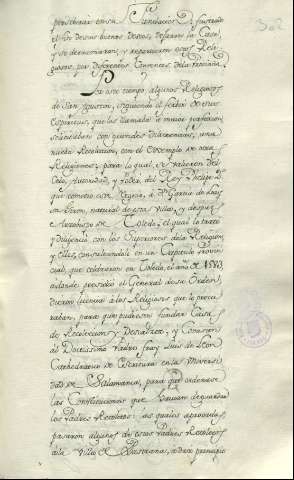 302
perseberar en su fundacion, y frustrado
el fin de sus buenos deseos, dejaron la Casa
y se desmembraron, y repartieron esos Reli-
giosos, por diferentes Conventos de la Provincia.
Por este tiempo, algunos Religiosos
de San Agustin, siguiendo el ferbor de sus
espiritus, que los llamaba à mucha perfeccion,
suscitaban con grandes diligencias, una
nueba Recoleccion, con el exemplo de otras
Religiones, para lo qual se valieron del
Celo, Autoridad, y Poder del Rey Phelipe 2º
que cometio este Negocio, à Dn Garcia de Loay
sa Giron, natural de esta Villa, y despues
Arzobispo de Toledo, el qual lo trato
y diligencio con los Superiores de la Religion
y Ellos, consultandolo en un Capitulo Provin
cial, que celebraron en Toledo, el año de 1588
adonde presidio el General de su Orden,
dieron licencia à los Religiosos que lo procu
raban, para que pudiesen fundar Casas
de Recoleccion, y Descalzez, y Cometieron
al Doctissimo Padre Fray Luis de Leon
Cathedratico de Escritura en la Universi
dad de Salamanca, para que ordenase
las Constituciones que habian de guardar
los Padres Recoletos: las quales aprobadas,
pasaron algunos de estos Padres Recoletos
à la Villa de Pastrana, à dar principio